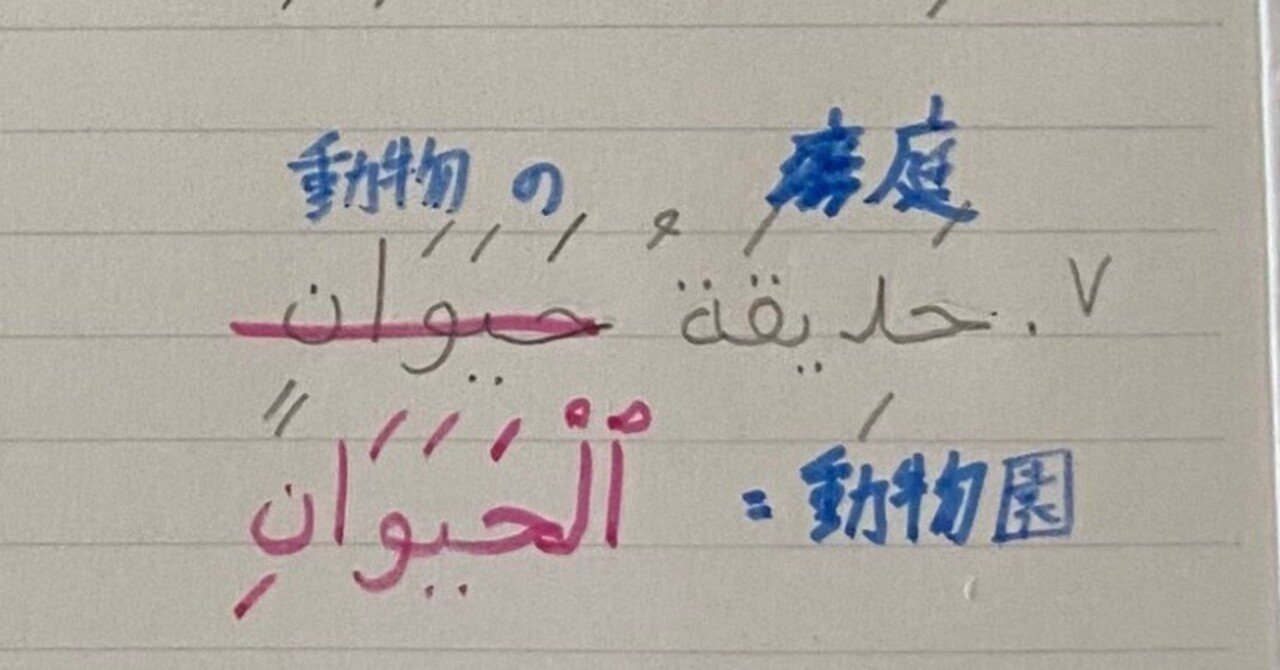 動物の 庭
٧. حَدِيقَةُ حَيَوَانٍ
= 動物園
ٱلْحَيَوَانِ